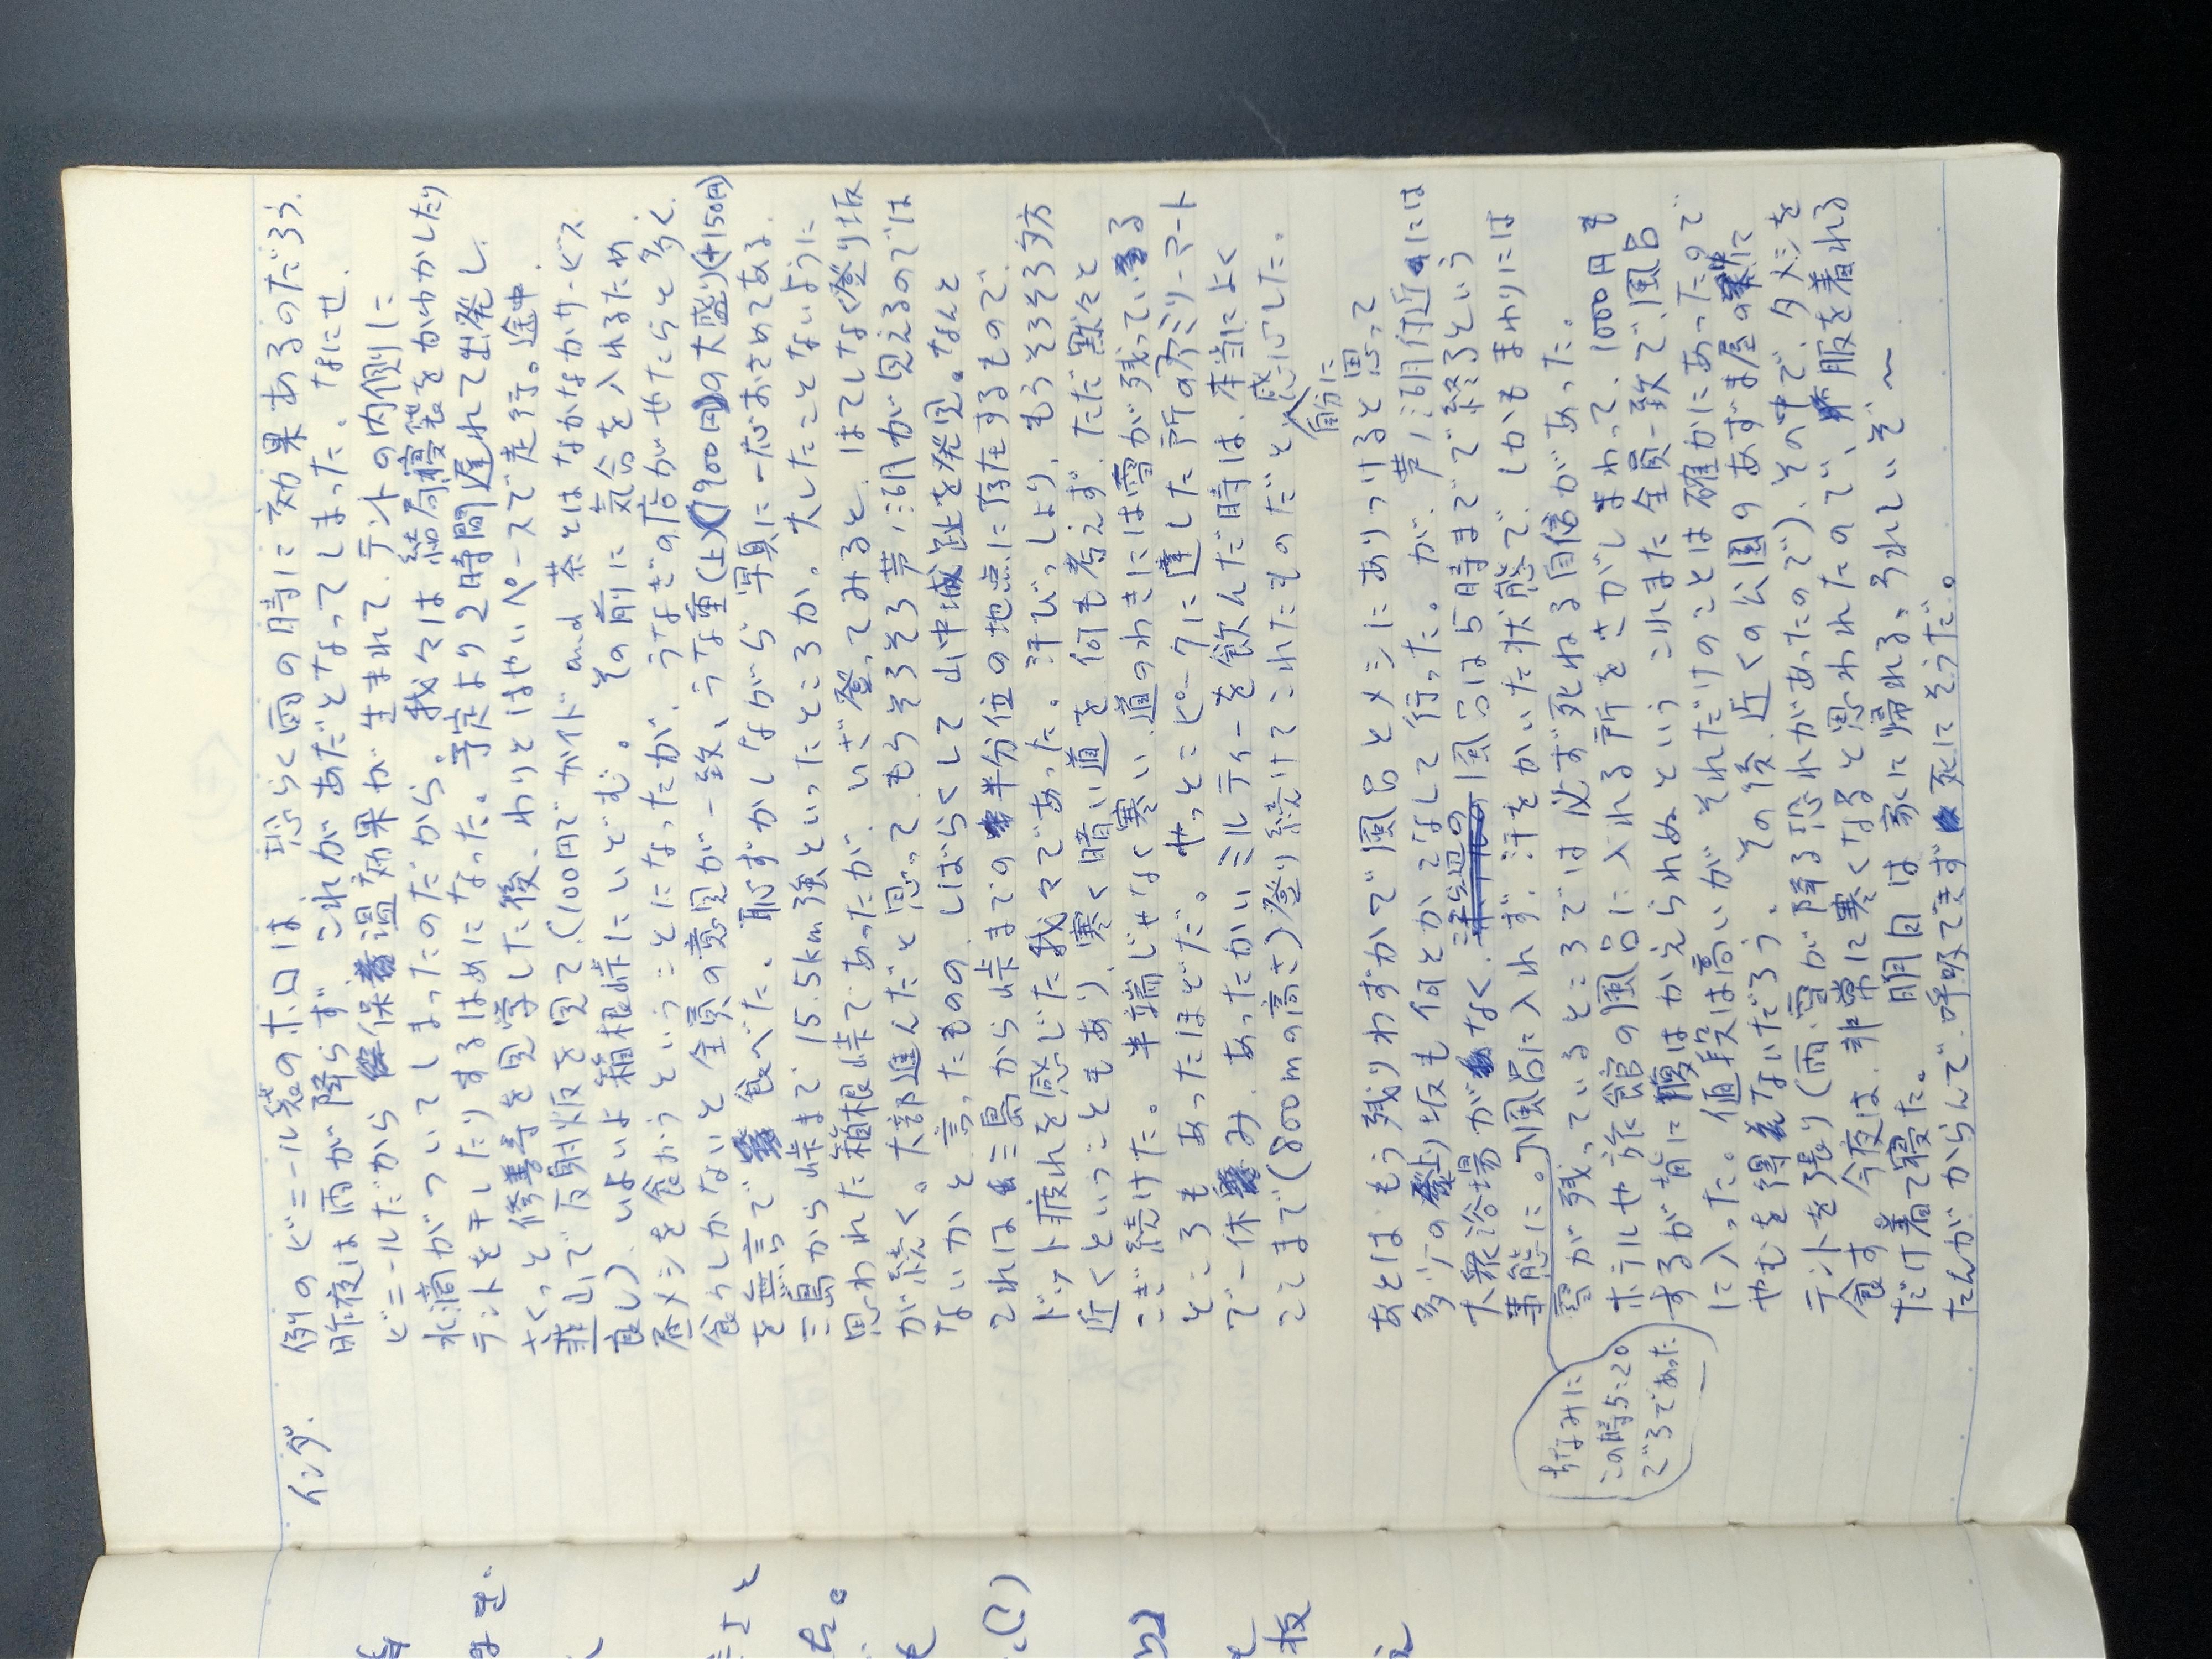 インダ.
例のビニール袋のホロは 恐らく雨の時に効果あるのだろう.
昨夜は雨が降らず これがあだとなってしまった. なにせ.
ビニールだから 保温効果が生まれて. テントの内側に
水滴がついてしまったのだから。我々は 結局寝袋をかわかしたり
テントを干したりするはめになった。予定より2時間遅れて出発し.
さくっと修善寺を見学した後、わりとはやいペースで走行。途中
韮山で反射炉を見て.(100円でガイド and 茶とはなかなかサービス
良し). いよいよ箱根峠にいどむ。その前に 気合を入れるため
昼メシを食おうということになったが. うなぎの店がやたらと多く.
食うしかないと全員の意見が一致、うな重(上)(1900円)の大盛り(+150円)
を無言で 食べた. 恥ずかしながら写真に一応おさめてある.
三島から峠まで15.5km強といったところか。大したことないように
思われた箱根峠であったが. いざ登ってみると. はてしなく登り坂
が続く。大部進んだと思って もうそろそろ芦ノ湖が見えるのでは
ないかと言ったものの. しばらくして山中城趾を発見。なんと
これは三島から峠までの半分位の地点に存在するもので.
ドット疲れを感じた我々であった. 汗びっしょり. もうそろそろ夕方
近くということもあり. 寒く暗い道を 何も考えず. ただ黙々と
こぎ続けた。半端じゃなく寒い. 道のわきには雪が残っている
ところも あったほどだ。やっとこピークに達した所のファミリーマート
で一休み. あったかいミルティーを飲んだ時は. 本当によく
ここまで(800mの高さ)登り続けてこれたものだと 自分に 感心した。
あとは もう残りわずかで風呂とメシにありつけると思って
多少の登り坂も何とかこなして行った。が. 芦ノ湖付近には
大衆浴場がなく. 風呂は5時までで終るという
事態に。風呂に入れず. 汗をかいた状態で. しかもまわりには
雪が残っているところでは必ず死ねる自信があった。
ちなみに
この時5:20
ごろであった
ホテルや旅館の風呂に入れる所をさがしまわって. 1000円も
するが背に腹はかえられぬという これまた全員一致で風呂
に入った。値段は高いが それだけのことは確かにあったので
やむを得ないだろう. その後. 近くの公園のあずま屋に
テントを張り(雨.雪が降る恐れがあったので). その中で. 夕メシを
食す 今夜は. 非常に寒くなると思われたので、服を着れる
だけ着て寝た。明日は 家に帰れる、うれしいぞ〜
たんがからんで. 呼吸できず死にそうだ。